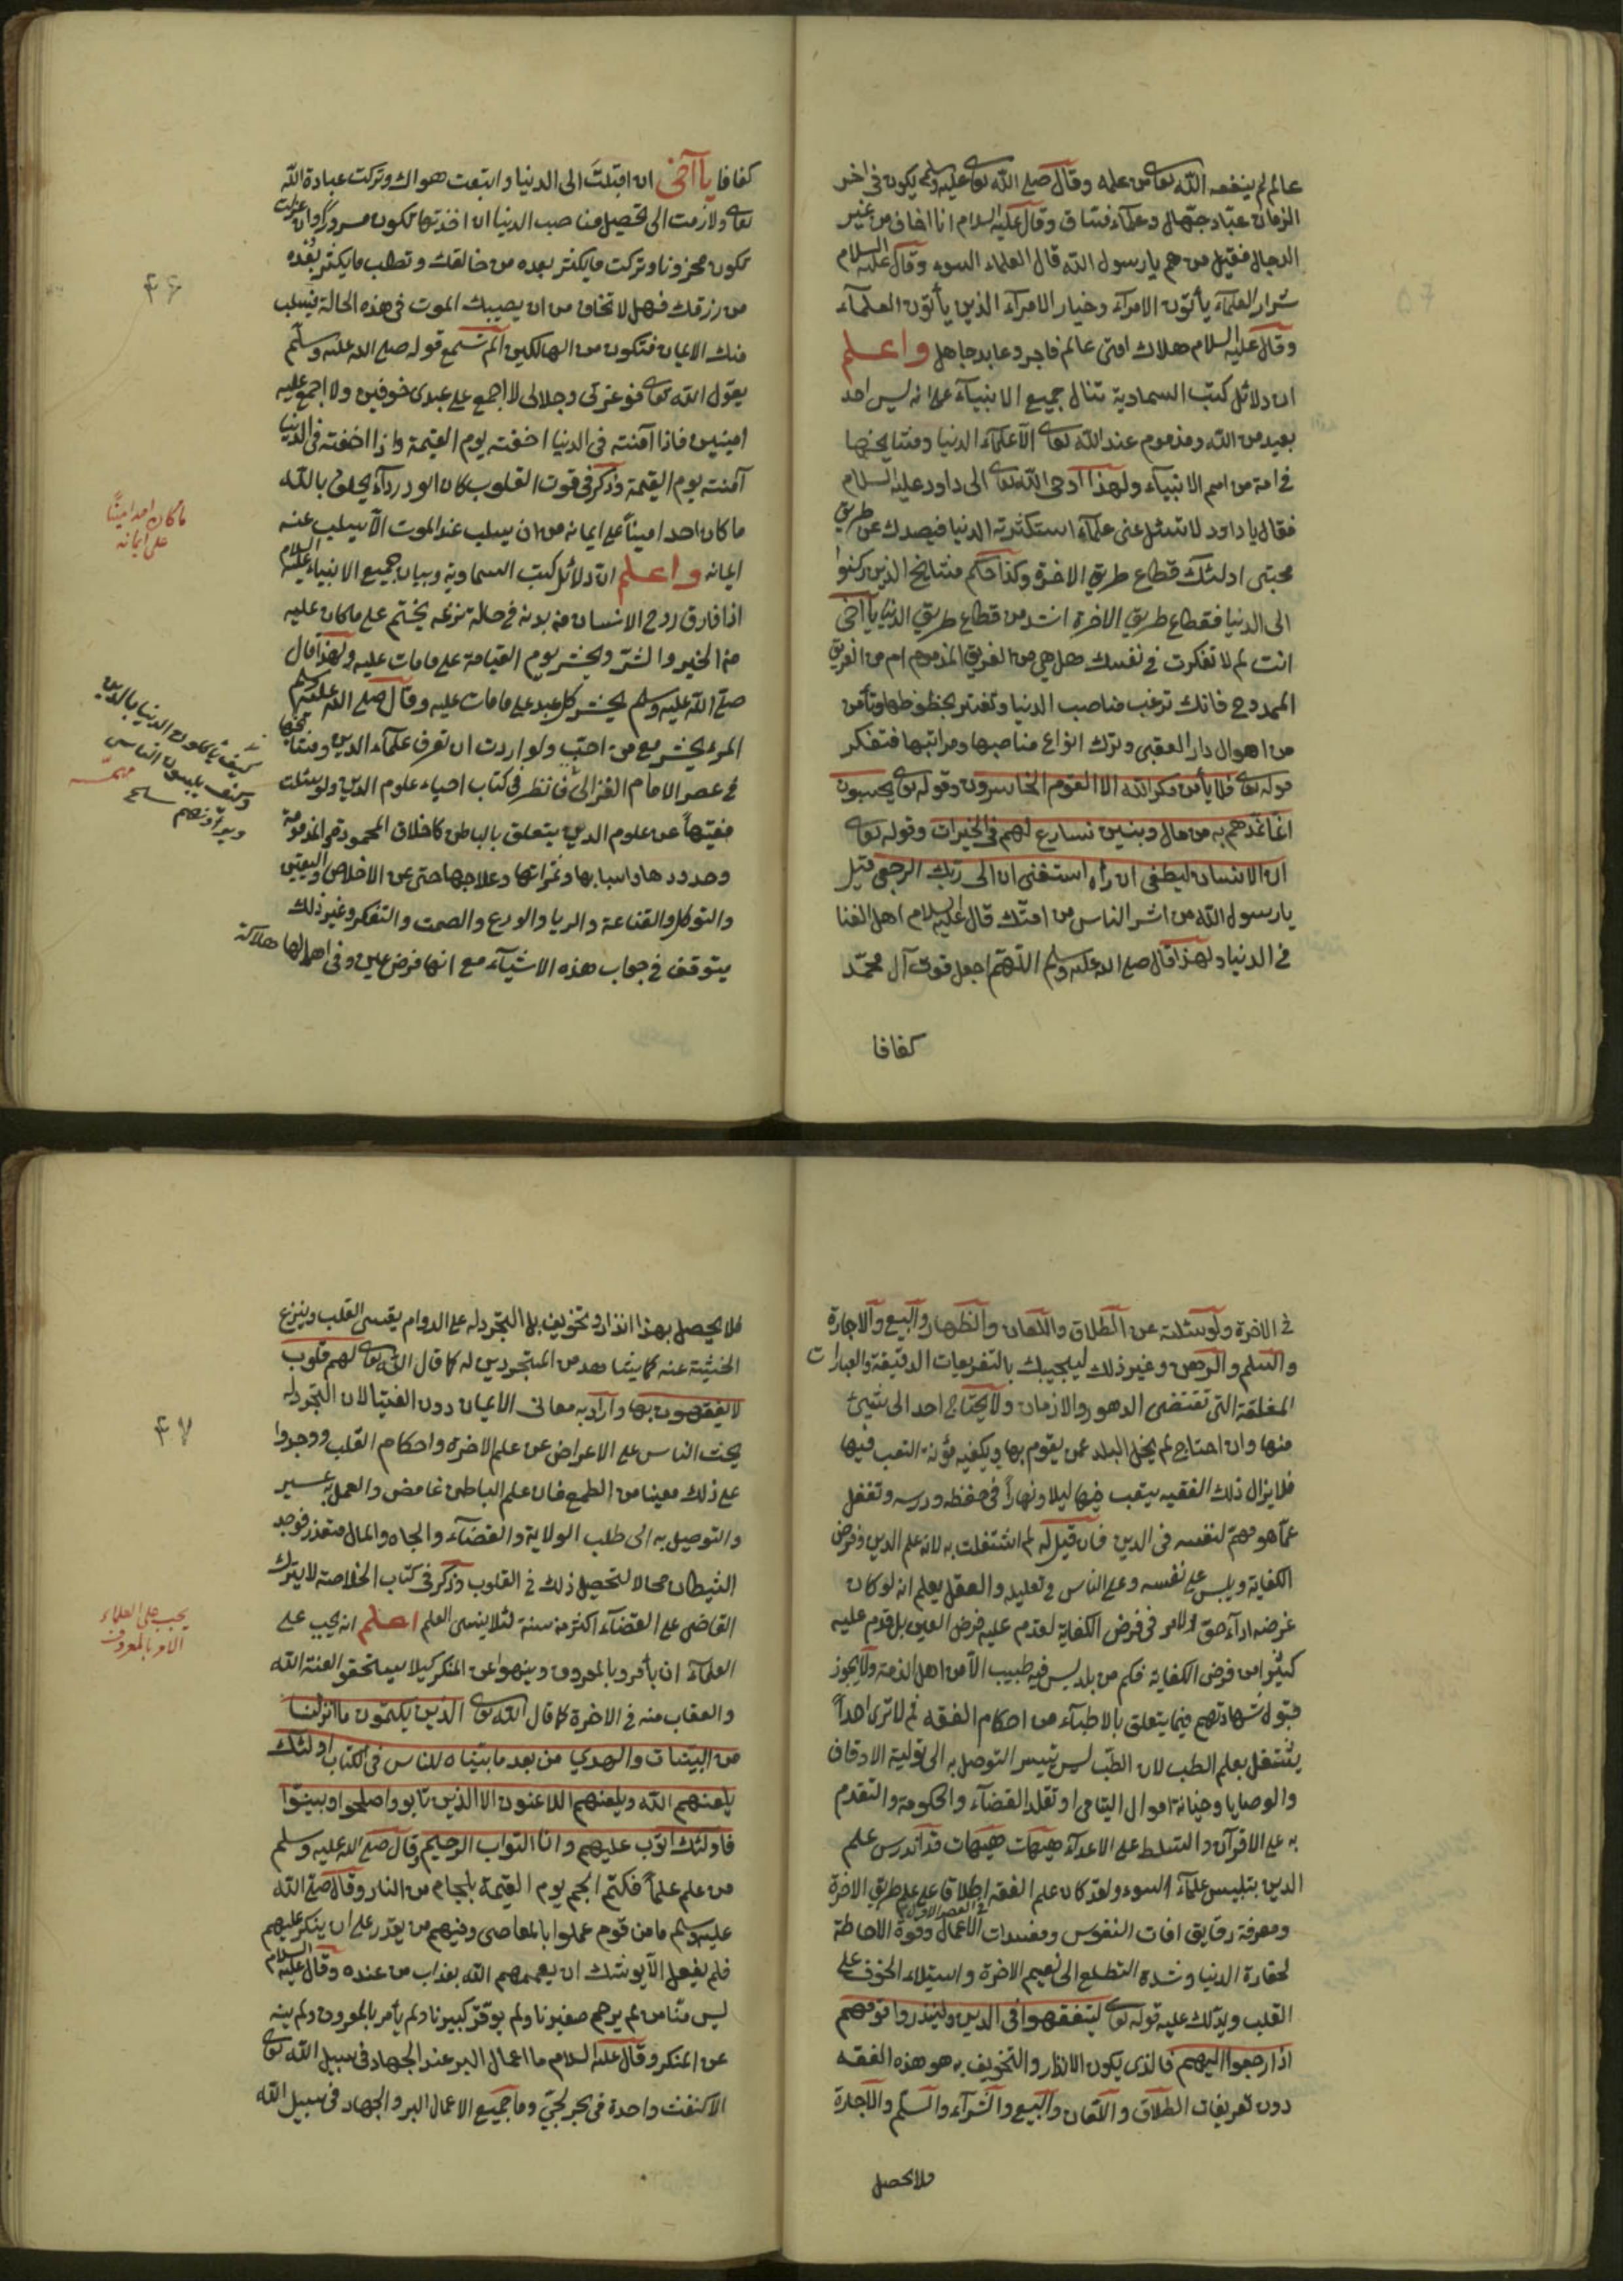 عالم لم ينفعه الله تعالى من علمه وقال صلى الله تعالى عليه وسلم يكون في اخر
الزمان عبّاد جهّال وعلمآء فسّاق وقال عليه السلام انا اخاف من غير
الدجال فقيل من هم يا رسول الله قال العلماء السوء وقال عليه السلام
شرار العلمآء يأتون الامرآء وخيار الامرآء الذين يأتون العلمآء
وقال عليه السلام هلاك امتى عالم فاجر وعابد جاهل واعلم
ان دلائل كتب السماوية تنال جميع الانبيآء على انه ليس احد
بعيد من الله ومذموم عند الله تعالى الا علمآء الدنيا ومشايخها
في امة من امم الانبيآء ولهذا اوحى الله تعالى الى داود عليه السلام
فقال يا داود لا تسئل عنى علمآء استكثرته الدنيا فيصدك عن طريق
محبتى اولئك قطاع طريق الاخرة وكذا حكم مشايخ الذين ركنوا
الى الدنيا فقطاع طريق الاخرة اشد من قطاع طريق الدنيا يا اخى
انت لم لا تفكرت في نفسك هل هي من الفريق المذموم ام من الفريق
الممدوح فانك ترغب مناصب الدنيا وتغتر بحظوظها وتأمن
من اهوال دار العقبى وترك انواع مناصبها ومراتبها فتفكر
قوله تعالى فلا يأمن مكر الله الا القوم الخاسرون وقوله تعالى يحسبون
انما نمدهم به من مال وبنين نسارع لهم في الخيرات وقوله تعالى
ان الانسان ليطغى ان رآه استغنى ان الى ربك الرجعى قيل
يا رسول الله من اشر الناس من امتك قال عليه السلام اهل الغنا
في الدنيا ولهذا قال صلى الله عليه وسلم اللهم اجعل قوت آل محمد
كفافا
كفافا يا اخى ان اقبلت الى الدنيا واتبعت هواك وتركت عبادة الله
تعالى ولازمت الى تحصيل مناصب الدنيا ان اخذتها تكون مسرورا وان عزلت
تكون محزونا وتركت ما يكثر بعده من خالقك وتطلب ما يكثر بعده
من رزقك فهل لا تخاف من ان يصيبك الموت في هذه الحالة فيسلب
منك الايمان فتكون من الهالكين الم تسمع قوله صلى الله عليه وسلم
يقول الله تعالى فوعزتى وجلالى لا اجمع على عبدى خوفين ولا اجمع عليه
امينين فاذا آمنته في الدنيا اخفته يوم القيمة واذا اخفته في الدنيا
آمنته يوم القيمة وذكر في قوت القلوب كان ابو درداء يحلف بالله
ما كان احد امينا على ايمانه من ان يسلب عند الموت الا يسلب عنه
ايمانه واعلم ان دلائل كتب السماوية وبيان جميع الانبياء عليه السلام
اذا فارق روح الانسان من بدنه في حالة نزعه يختم على ما كان عليه
من الخير والشر ويحشر يوم القيامة على ما مات عليه ولهذا قال
صلى الله عليه وسلم يحشر كل عبد على ما مات عليه وقال صلى الله عليه وسلم
المرء يحشر مع من احبّ ولو اردت ان تعرف علمآء الدين ومشايخها
في عصر الامام الغزالى فانظر في كتاب احياء علوم الدين ولو سئلت
فقيها عن علوم الدين يتعلق بالباطن كاخلاق المحمودة والمذمومة
وحدودها واسبابها وثمراتها وعلاجها حتى عن الاخلاص واليقين
والتوكل والقناعة والريا والورع والصمت والتفكر وغير ذلك
يتوقف في جواب هذه الاشيآء مع انها فرض عين وفي اهمالها هلاكة
۴۶
ما كان احد امينا
على ايمانه
كيف يأكلون الدنيا بالدين
وكيف يلبسون الناس
مهمّة
في الاخرة ولو سئلته عن الطلاق واللعان والظهار والبيع والاجارة
والسلم والرهن وغير ذلك ليجيبك بالتفريعات الدقيقة والعبارات
المغلقة التى تقتضى الدهور والازمان ولا يحتاج احد الى شيئ
منها وان احتاج لم يخل البلد عمن يقوم بها ويكفيه مؤنة التعب فيها
فلا يزال ذلك الفقيه يتعب فيها ليلا ونهارا في حفظه ودرسه وتغفل
عما هو مهم لنفسه في الدين فان قيل له لم اشتغلت به لانه علم الدين وفرض
الكفاية ويلبس على نفسه وعلى الناس في تعليه والعقل يعلم انه لو كان
غرضه ادآء حق الامر في فرض الكفاية لقدم عليه فرض العين بل قدم عليه
كثيرا من فرض الكفاية فكم من بلد ليس فيه طبيب الا من اهل الذمة ولا يجوز
قبول شهادتهم فيما يتعلق بالاطبآء من احكام الفقه ثم لا ترى احدا
يشتغل بعلم الطب لان الطب ليس تيسر التوصل به الى تولية الاوقاف
والوصايا وخيانة اموال اليتامى او تقلد القضآء والحكومة والتقدم
به على الاقران والتسلط على الاعدآء هيهات هيهات قد اندرس علم
الدين بتلبيس علمآء السوء ولقد كان علم الفقه اطلاقا على علم طريق الاخرة
في العصر الاول
ومعرفة دقايق افات النفوس ومفسدات الاعمال وقوة الاحاطة
لحقارة الدنيا وشدة التطلع الى نعيم الاخرة واستيلاء الخوف على
القلب ويدلك عليه قوله تعالى ليتفقهوا في الدين ولينذروا قومهم
اذا رجعوا اليهم فالذى يكون الانذار والتخويف به هو هذه الفقه
دون تعريفات الطلاق واللعان والبيع والشرآء والسلم والاجارة
فلا يحصل
فلا يحصل بهذا انذار وتخويف بل التجرد له على الدوام يقسى القلب وينزع
الخشية عنه كما يشاهد من المتجردين له كما قال الله تعالى لهم قلوب
لا يفقهون بها واراد به معانى الايمان دون الفتيا لان التجرد له
يحث الناس على الاعراض عن علم الاخرة واحكام القلب ووجدوا
على ذلك معينا من الطمع فان علم الباطن غامض والعمل به عسير
والتوصيل به الى طلب الولاية والقضآء والجاه والمال متعذر فوجد
الشيطان مجالا لتحصيل ذلك في القلوب وذكر في كتاب الخلاصة لا يترك
القاضى على القضآء اكثر من سنة لئلا ينسى العلم اعلم انه يجب على
العلمآء ان يأمروا بالمعروف وينهوا عن المنكر كيلا يستحقوا لعنة الله
والعقاب منه في الاخرة كما قال الله تعالى الذين يكتمون ما انزلنا
من البينات والهدى من بعد ما بيناه للناس في الكتاب اولئك
يلعنهم الله ويلعنهم اللاعنون الا الذين تابوا واصلحوا وبينوا
فاولئك اتوب عليهم وانا التواب الرحيم وقال صلى الله عليه وسلم
من علم علما فكتم الجم يوم القيمة بلجام من النار وقال صلى الله
عليه وسلم ما من قوم عملوا بالمعاصى وفيهم من يقدر على ان ينكر عليهم
فلم يفعل الا يوشك ان يعمهم الله بعذاب من عنده وقال عليه السلام
ليس منا من لم يرحم صغيرنا ولم يوقر كبيرنا ولم يأمر بالمعروف ولم ينه
عن المنكر وقال عليه السلام ما اعمال البر عند الجهاد في سبيل الله تعالى
الا كنفث واحدة في بحر لجىّ وما جميع الاعمال البر والجهاد في سبيل الله
۴۷
يجب على العلماء
الامر بالمعروف